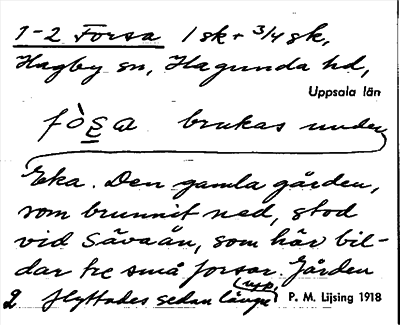 1-2 Forsa 1 sk + 3/4 sk,
Hagby sn, Hagunda hd,
Uppsala län
fòs̳a brukas under
Eka. Den gamla gården,
som brunnit ned, stod
vid Sävaån, som här bil-
dar tre små forsar. Gården
upp
2 flyttades sedan längre P. M. Lijsing 1918